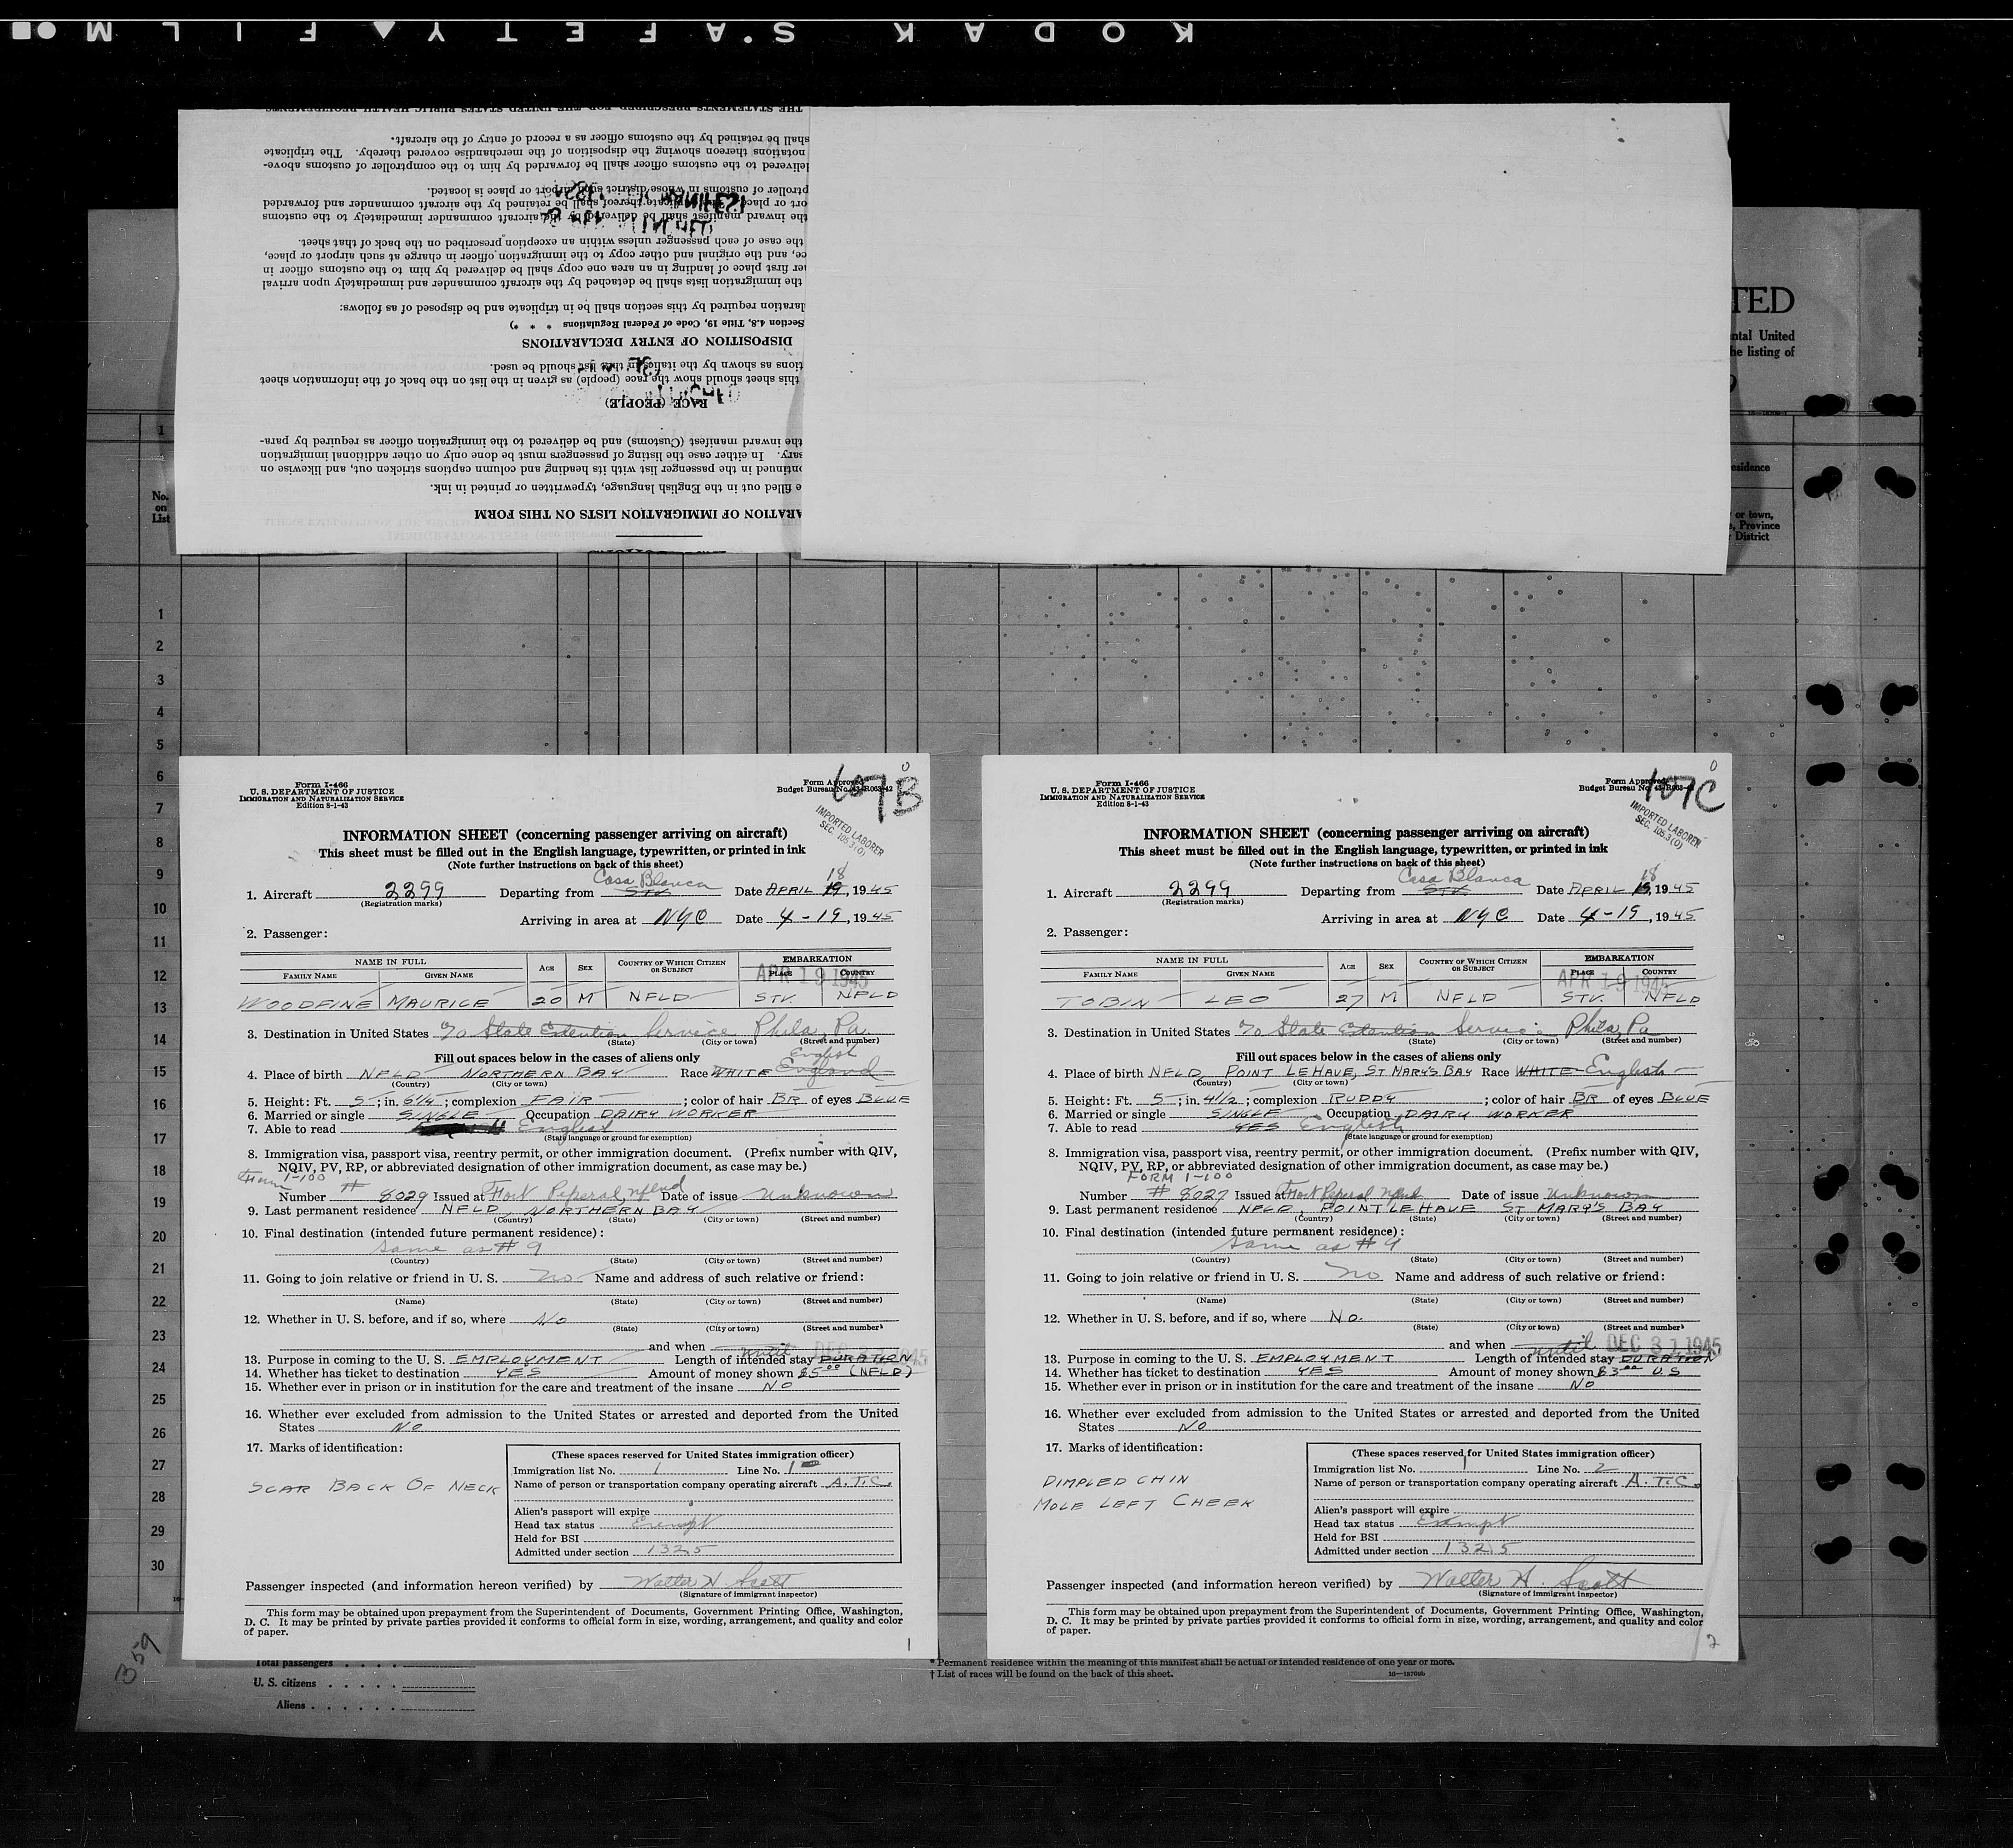 KODAK SAFETY FILM
THE STATEMENTS PRESCRIBED FOR THE UNITED STATES PUBLIC HEALTH REQUIREMENTS
shall be retained by the customs officer as a record of entry of the aircraft.
notations thereon showing the disposition of the merchandise covered thereby. The triplicate
delivered to the customs officer shall be forwarded by him to the comptroller of customs above-
ptroller of customs in whose district such airport or place is located.
ort or place. The duplicate thereof shall be retained by the aircraft commander and forwarded
the inward manifest shall be delivered by the aircraft commander immediately to the customs
the case of each passenger unless within an exception prescribed on the back of that sheet.
ce, and the original and other copy to the immigration officer in charge at such airport or place,
er first place of landing in an area one copy shall be delivered by him to the customs officer in
the immigration lists shall be detached by the aircraft commander and immediately upon arrival
laration required by this section shall be in triplicate and be disposed of as follows:
Section 4.8, Title 19, Code of Federal Regulations * * *)
DISPOSITION OF ENTRY DECLARATIONS
tions as shown by the italics in that list should be used.
this sheet should show the race (people) as given in the list on the back of the information sheet
RACE (PEOPLE)
the inward manifest (Customs) and be delivered to the immigration officer as required by para-
sary. In either case the listing of passengers must be done only on other additional immigration
ontinued in the passenger list with its heading and column captions stricken out, and likewise on
e filled out in the English language, typewritten or printed in ink.
ARATION OF IMMIGRATION LISTS ON THIS FORM
TED
ntal United
he listing of
esidence
or town,
Province
District
1
No.
on
List
1
2
3
4
5
6
7
8
9
10
11
12
13
14
15
16
17
18
19
20
21
22
23
24
25
26
27
28
29
30
Form I-466
U. S. DEPARTMENT OF JUSTICE
IMMIGRATION AND NATURALIZATION SERVICE
Edition 8-1-43
Form Approved
Budget Bureau No. 43-R063-42
107B
IMPORTED LABORER
SEC. 105.3(0)
INFORMATION SHEET (concerning passenger arriving on aircraft)
This sheet must be filled out in the English language, typewritten, or printed in ink
(Note further instructions on back of this sheet)
Casa Blanca 18
1. Aircraft 2299 Departing from STV. Date APRIL 19, 1945
(Registration marks)
Arriving in area at NYC Date 4-19, 1945
2. Passenger:
NAME IN FULL AGE SEX COUNTRY OF WHICH CITIZEN OR SUBJECT EMBARKATION
FAMILY NAME GIVEN NAME PLACE COUNTRY
APR 19 1945
WOODFINE MAURICE 20 M NFLD STV. NFLD
3. Destination in United States % State Extention Service Phila, Pa.
(State) (City or town) (Street and number)
Fill out spaces below in the cases of aliens only
English
4. Place of birth NFLD NORTHERN BAY Race WHITE England
(Country) (City or town)
5. Height: Ft. 5; in. 6 1/4; complexion FAIR; color of hair BR of eyes BLUE
6. Married or single SINGLE Occupation DAIRY WORKER
7. Able to read English
(State language or ground for exemption)
8. Immigration visa, passport visa, reentry permit, or other immigration document. (Prefix number with QIV,
NQIV, PV, RP, or abbreviated designation of other immigration document, as case may be.)
Form I-100
Number # 8029 Issued at Fort Peperal, Nflnd Date of issue Unknown
9. Last permanent residence NFLD, NORTHERN BAY
(Country) (State) (City or town) (Street and number)
10. Final destination (intended future permanent residence):
Same as # 9
(Country) (State) (City or town) (Street and number)
11. Going to join relative or friend in U. S. no Name and address of such relative or friend:
(Name) (State) (City or town) (Street and number)
12. Whether in U. S. before, and if so, where No
(State) (City or town) (Street and number)
and when
until DEC 31 1945
13. Purpose in coming to the U. S. EMPLOYMENT Length of intended stay DURATION
14. Whether has ticket to destination YES Amount of money shown $5.00 (NFLD)
15. Whether ever in prison or in institution for the care and treatment of the insane NO
16. Whether ever excluded from admission to the United States or arrested and deported from the United
States NO
17. Marks of identification:
SCAR BACK OF NECK
(These spaces reserved for United States immigration officer)
Immigration list No. 1 Line No. 1
Name of person or transportation company operating aircraft A.T.C.
Alien's passport will expire
Head tax status Exempt
Held for BSI
Admitted under section 132.5
Passenger inspected (and information hereon verified) by Walter H Scott
(Signature of immigrant inspector)
This form may be obtained upon prepayment from the Superintendent of Documents, Government Printing Office, Washington,
D. C. It may be printed by private parties provided it conforms to official form in size, wording, arrangement, and quality and color
of paper.
1
Form I-466
U. S. DEPARTMENT OF JUSTICE
IMMIGRATION AND NATURALIZATION SERVICE
Edition 8-1-43
Form Approved
Budget Bureau No. 43-R063-42
107C
IMPORTED LABORER
SEC. 105.3(0)
INFORMATION SHEET (concerning passenger arriving on aircraft)
This sheet must be filled out in the English language, typewritten, or printed in ink
(Note further instructions on back of this sheet)
Casa Blanca 18
1. Aircraft 2299 Departing from STV. Date APRIL 19, 1945
(Registration marks)
Arriving in area at NYC Date 4-19, 1945
2. Passenger:
NAME IN FULL AGE SEX COUNTRY OF WHICH CITIZEN OR SUBJECT EMBARKATION
FAMILY NAME GIVEN NAME PLACE COUNTRY
APR 19 1945
TOBIN LEO 27 M NFLD STV. NFLD
3. Destination in United States % State Extention Service Phila, Pa
(State) (City or town) (Street and number)
Fill out spaces below in the cases of aliens only
4. Place of birth NFLD, POINT LEHAVE, ST MARY'S BAY Race WHITE English
(Country) (City or town)
5. Height: Ft. 5; in. 4 1/2; complexion RUDDY; color of hair BR of eyes BLUE
6. Married or single SINGLE Occupation DAIRY WORKER
7. Able to read YES English
(State language or ground for exemption)
8. Immigration visa, passport visa, reentry permit, or other immigration document. (Prefix number with QIV,
NQIV, PV, RP, or abbreviated designation of other immigration document, as case may be.)
FORM I-100
Number # 8027 Issued at Fort Peperal Nflnd Date of issue Unknown
9. Last permanent residence NFLD, POINT LEHAVE ST MARY'S BAY
(Country) (State) (City or town) (Street and number)
10. Final destination (intended future permanent residence):
Same as # 9
(Country) (State) (City or town) (Street and number)
11. Going to join relative or friend in U. S. no Name and address of such relative or friend:
(Name) (State) (City or town) (Street and number)
12. Whether in U. S. before, and if so, where No.
(State) (City or town) (Street and number)
and when
until DEC 31 1945
13. Purpose in coming to the U. S. EMPLOYMENT Length of intended stay DURATION
14. Whether has ticket to destination YES Amount of money shown $3.00 U.S
15. Whether ever in prison or in institution for the care and treatment of the insane NO
16. Whether ever excluded from admission to the United States or arrested and deported from the United
States NO
17. Marks of identification:
DIMPLED CHIN
MOLE LEFT CHEEK
(These spaces reserved for United States immigration officer)
Immigration list No. 1 Line No. 2
Name of person or transportation company operating aircraft A.T.C.
Alien's passport will expire
Head tax status Exempt
Held for BSI
Admitted under section 132.5
Passenger inspected (and information hereon verified) by Walter H. Scott
(Signature of immigrant inspector)
This form may be obtained upon prepayment from the Superintendent of Documents, Government Printing Office, Washington,
D. C. It may be printed by private parties provided it conforms to official form in size, wording, arrangement, and quality and color
of paper.
2
359
Total passengers
U. S. citizens
Aliens
* Permanent residence within the meaning of this manifest shall be actual or intended residence of one year or more.
† List of races will be found on the back of this sheet.
16—18709b